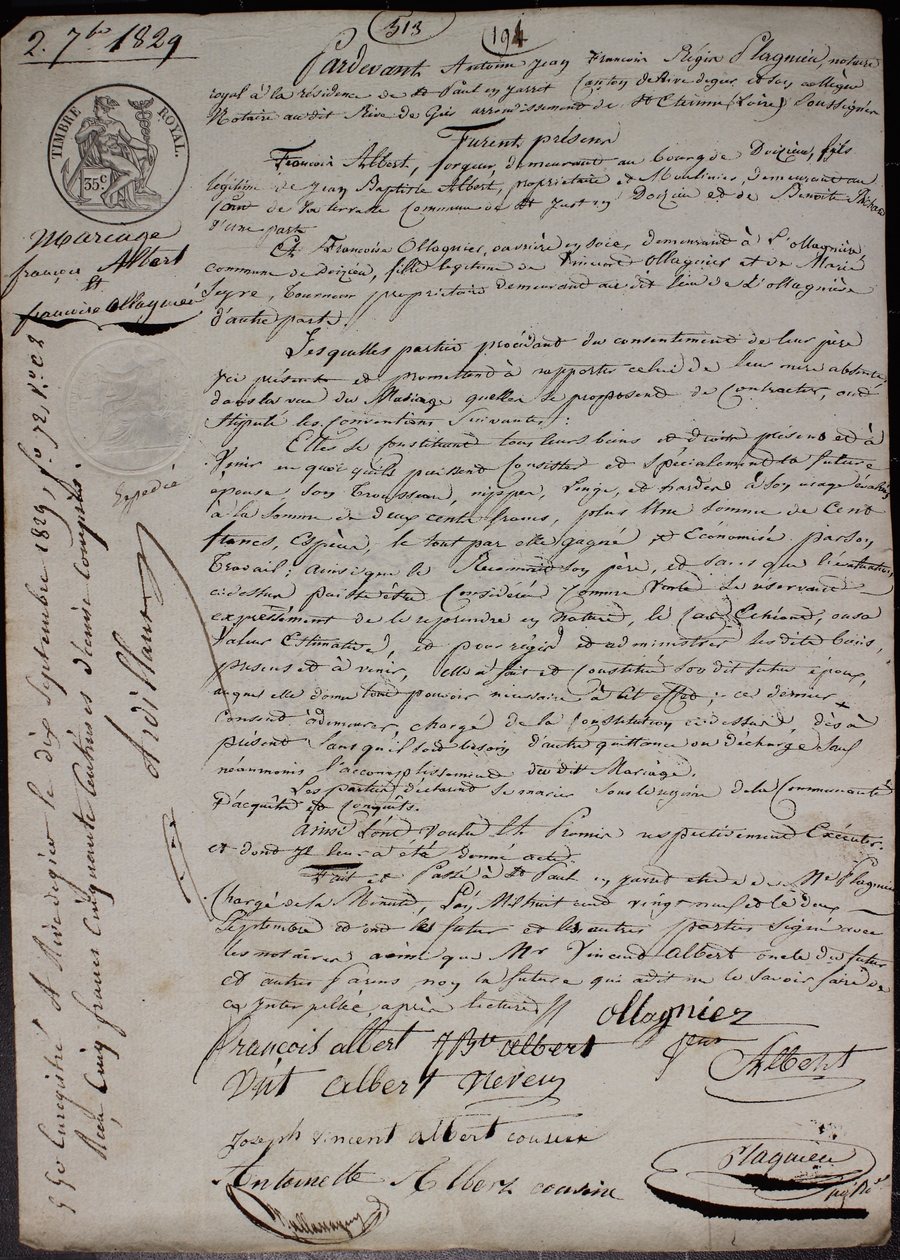 2. 7bre 1829
513
194
TIMBRE ROYAL.
35c
Mariage
françois Albert
Et
françoise Ollagnier
Expédié
Pardevant Antoine Jean François Régis Plagnieu, notaire
royal à la résidence de St Paul en jarret Canton de Rive de gier et son collègue
Notaire au dit Rive de Gier arrondissement de St Etienne (Loire) Soussignés
Furent présens
François Albert, forgeur, demeurant au bourg de Doizieu, fils
légitime de Jean Baptiste Albert, propriétaire et Moulinier, demeurant au
de la terrasse Commune de St Just en Doizieu et de Benoîte
d'une part
Et Françoise Ollagnier, ouvrière en soie, demeurant à L'ollagnière
commune de Doizieu, fille légitime de Vincent Ollagnier et de Marie
Seyve, propriétaire demeurant au dit lieu de L'ollagnière
d'autre part.
Lesquelles parties procédant du consentement de leur père
ici présents et promettant à rapporter celui de leur mère absente,
dans la vue du Mariage quelles se proposent de Contracter, ont
Stipulé les Conventions Suivantes:
Elles se Constituent tous leurs biens et droits présens et à
Venir en quoi qu'ils puissent Consister et spécialement la future
épouse, son Trousseau, nippes, linge, et hardes à son usage évalués
à la somme de deux cents francs, plus Une somme de Cent
francs, Espèces, le tout par elle gagné et Économisé par son
Travail; ainsi que le Reconnait son père, et sans que l'évaluation
cidessus puisse être Considérée Comme Vente se réservant
expressément de le reprendre en Nature, le Cas Échéant, ou sa
Valeur Estimative, et pour régir et administrer les dits biens,
présens et à venir, elle a fait et Constitué son dit futur époux,
auquel elle donne tout pouvoir nécessaire à cet effet; ce dernier
Consent à demeurer chargé de la Constitution cidessus dès à
présent Sans qu'il soit besoin d'autre quittance ou décharge sauf
néanmoins l'accomplissement du dit Mariage.
Les parties déclarent se marier sous le régime de la Communauté
d'acquêts et Conquêts.
Ainsi Voulu Et Promis respectivement Exécuter.
et dont il leur a été donné acte.
Fait et Passé à St Paul en jarret étude de Me Plagnieu
Chargé de la Minute, L'an Mil huit cent vingt neuf et le deux
Septembre et ont les futur et les autres parties signé avec
les notaires ainsi que Mr Vincent Albert oncle du futur
et autres Parens non la future qui a dit ne le savoir faire de
ce Interpellée, après lecture //
Ollagnier
françois albert JBte albert
père
Albert
Vnt albert Neveu
Joseph Vincent albert cousin
Antoinette Albert cousine
Plagnieu
Enregistré A Rive de gier le dix Septembre 1829, fo 72, Vo C 8
Reçu Cinq francs Cinquante Centimes décime Compris